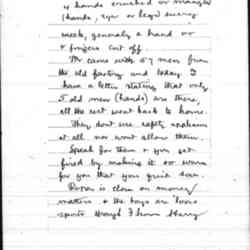 y hands crushed or mangled
(hands, eye or legs) every
week, generaly a hand or
+ fingers cut off.
We came with 57 men from
the old factory and today I
have a letter stating that only
7 old men (hands) are there,
all the rest went back to home.
They dont use safety appliances
at all nor wont allow them.
Speak for them + you get
fired by making it so warm
for you that you quit soon.
is close on money
matters + the boys are
sports through I know Harry